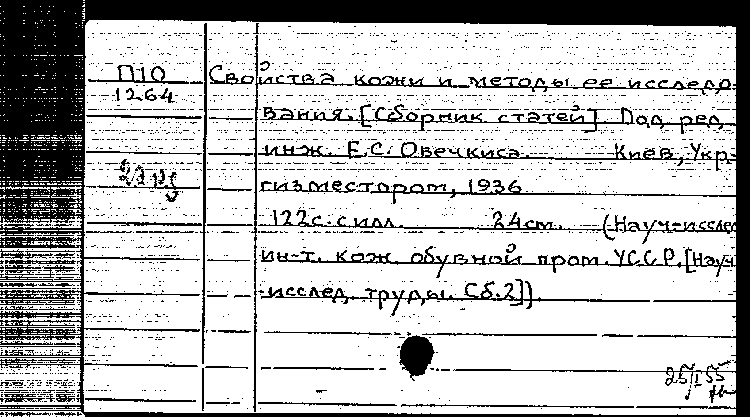 П10
1264
Свойства кожи и методы ее исследо-
вания. [Сборник статей] Под ред.
инж. Е.С. Овечкиса. Киев, Укр-
гизместпром, 1936
122с. с илл. 24см. (Науч-исслед
ин-т. кож. обувной пром. УССР. [Науч
-исслед. труды. Сб.2]).
25/I 55